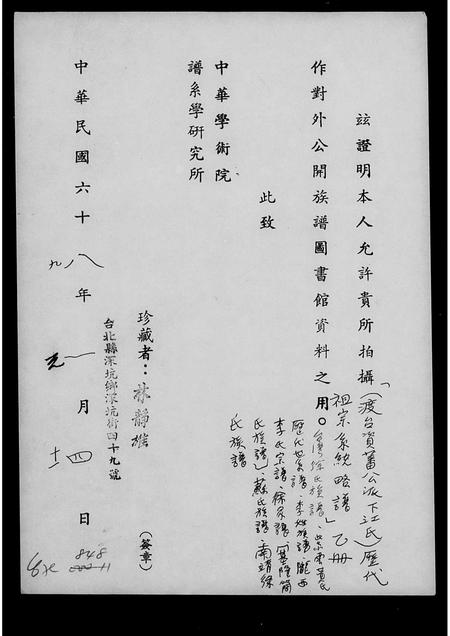 茲證明本人允許貴所拍攝「(渡台資蕃公派下江氏)歷代
祖宗系統略譜」乙冊
作對外公開族譜圖書館資料之用。
台灣徐氏族譜、紫雲黃氏
歷代世系譜、李姓族譜、隴西
李氏宗譜、徐氏譜(基隆
氏族譜)、蘇氏族譜、南靖徐
氏族譜
此致
中華學術院
譜系學研究所
珍藏者:林靜雄
台北縣深坑鄉深坑街四十九號
(簽章)
中華民國六十八年 月 四 日
九
十二
848